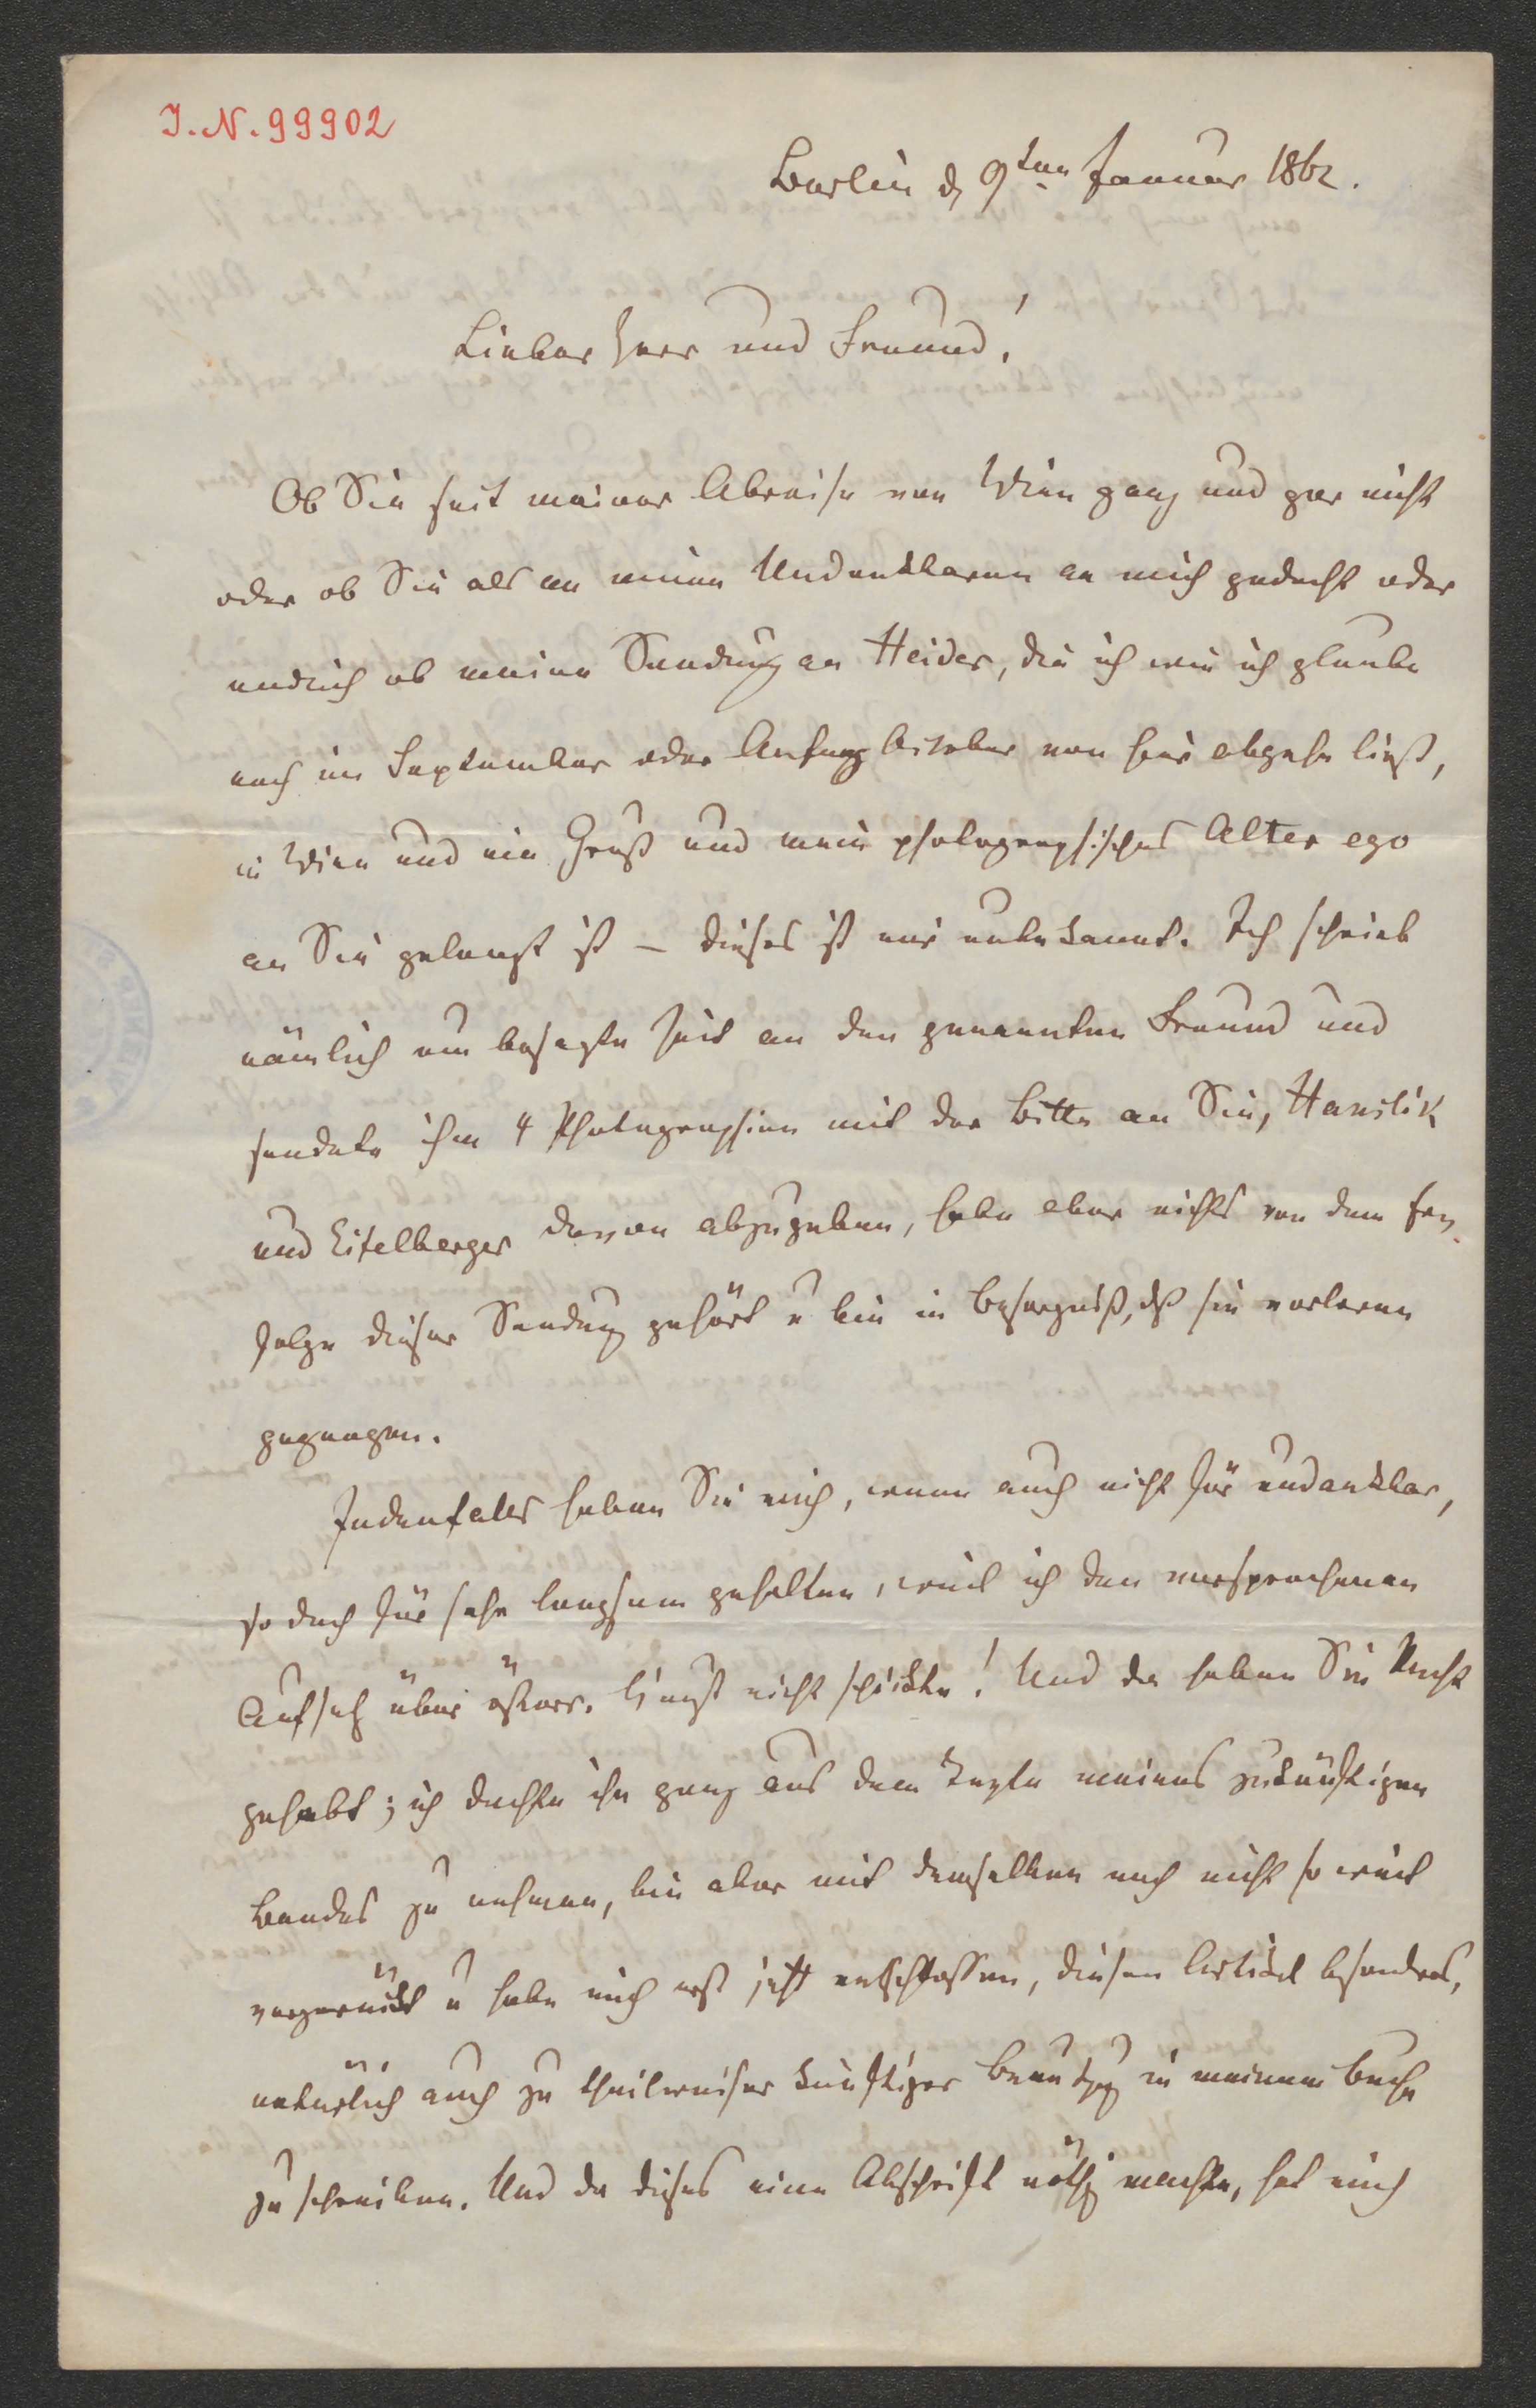 I.N. 99902
Berlin d 9ten Januar 1862.
Lieber Herr und Freund!
Ob Sie seit meiner Abreise von Wien ganz und gar nicht
oder ob Sie als an einen Undankbaren an mich gedacht oder
endlich ob meine Sendung an Heider, die ich wie ich glaube
noch im September oder Anfang October von hier abgehn ließ,
in Wien und ein Gruß und mein photographisches Alter ego
an Sie gelangt ist – dieses ist mir unbekannt. Ich schrieb
nämlich um besagte Zeit an den genannten Freund und
sendete ihm 4 Photographien mit der Bitte an Sie, Hanslik
und Eitelberger davon abzugeben, habe aber nichts von dem Er-
folge dieser Sendung gehört u bin in Besorgniß, dß sie verloren
gegangen.
Jedenfalls haben Sie mich, wenn auch nicht für undankbar,
so doch für sehr langsam gehalten, weil ich den versprochenen
Aufsatz über österr. Kunst nicht schickte! Und da haben Sie Recht
gehabt; ich dachte ihn ganz aus dem Texte meines zukünftigen
Bandes zu nehmen, bin aber mit demselben noch nicht so weit
vorgerückt u habe mich erst jetzt entschlossen, diesen Artikel besonders,
natürlich auch zu theilweiser künftiger Benutzg in meinem Buche
zu schreiben. Und da dieses eine Abschrift nöthig machte, hat mich